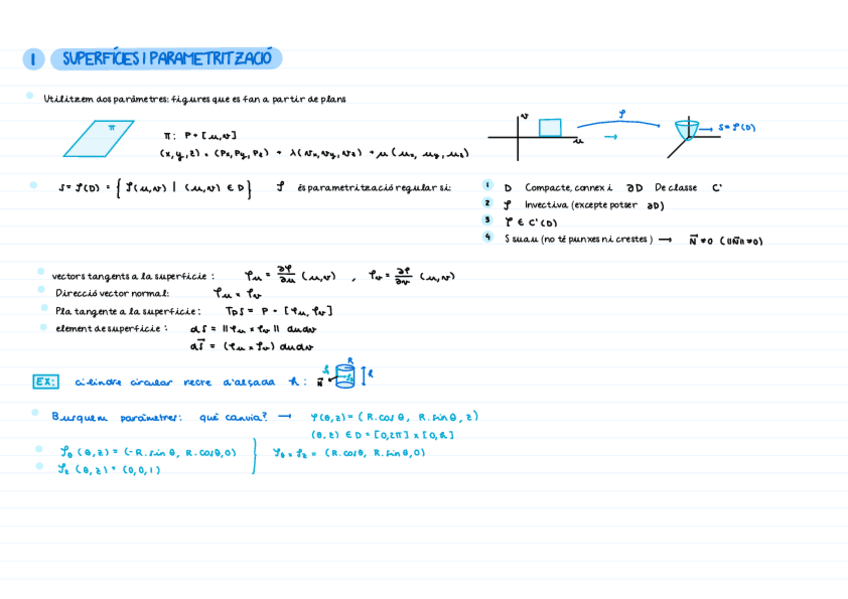 1 SUPERFÍCIES I PARAMETRITZACIÓ
Utilitzem dos paràmetres: figures que es fan a partir de plans
π
π: P + [u,v]
(x,y,z) = (Px, Py, Pz) + λ(vx, vy, vz) + μ(ux, uy, uz)
v
u
φ
S = φ(D)
S = φ(D) = { φ(u,v) | (u,v) ∈ D } φ és parametrització regular si:
1 D Compacte, connex i ∂D De classe C¹
2 φ Invectiva (excepte potser ∂D)
3 φ ∈ C¹(D)
4 S suau (no té punxes ni crestes) → N⃗ ≠ 0 (‖N⃗‖ ≠ 0)
vectors tangents a la superfície: φu = ∂φ/∂u (u,v) , φv = ∂φ/∂v (u,v)
Direcció vector normal: φu × φv
Pla tangente a la superfície: TpS = P + [φu, φv]
element de superfície: dS = ‖φu × φv‖ dudv
dS⃗ = (φu × φv) dudv
EX: cilindre circular recte d'alçada h:
N⃗
R
Busquem paràmetres: què canvia? → φ(θ,z) = (R.cos θ, R.sin θ, z)
(θ,z) ∈ D = [0,2π] x [0,h]
φθ (θ,z) = (-R.sin θ, R.cosθ,0)
φz (θ,z) = (0,0,1)
φθ × φz = (R.cosθ, R.sinθ,0)